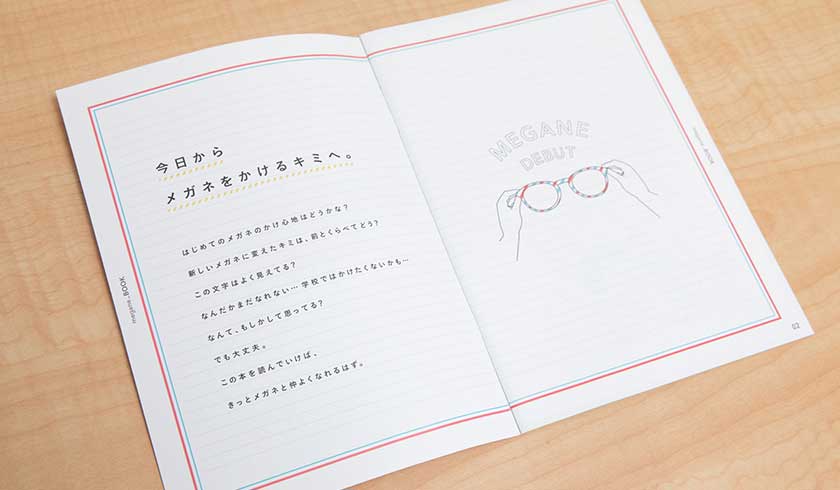 今日から
メガネをかけるキミへ。
はじめてのメガネのかけ心地はどうかな?
新しいメガネに変えたキミは、前とくらべてどう?
この文字はよく見えてる?
なんだかまだなれない… 学校ではかけたくないかも…
なんて、もしかして思ってる?
でも大丈夫。
この本を読んでいけば、
きっとメガネと仲よくなれるはず。
megane_BOOK
MEGANE
DEBUT
megane_BOOK
02